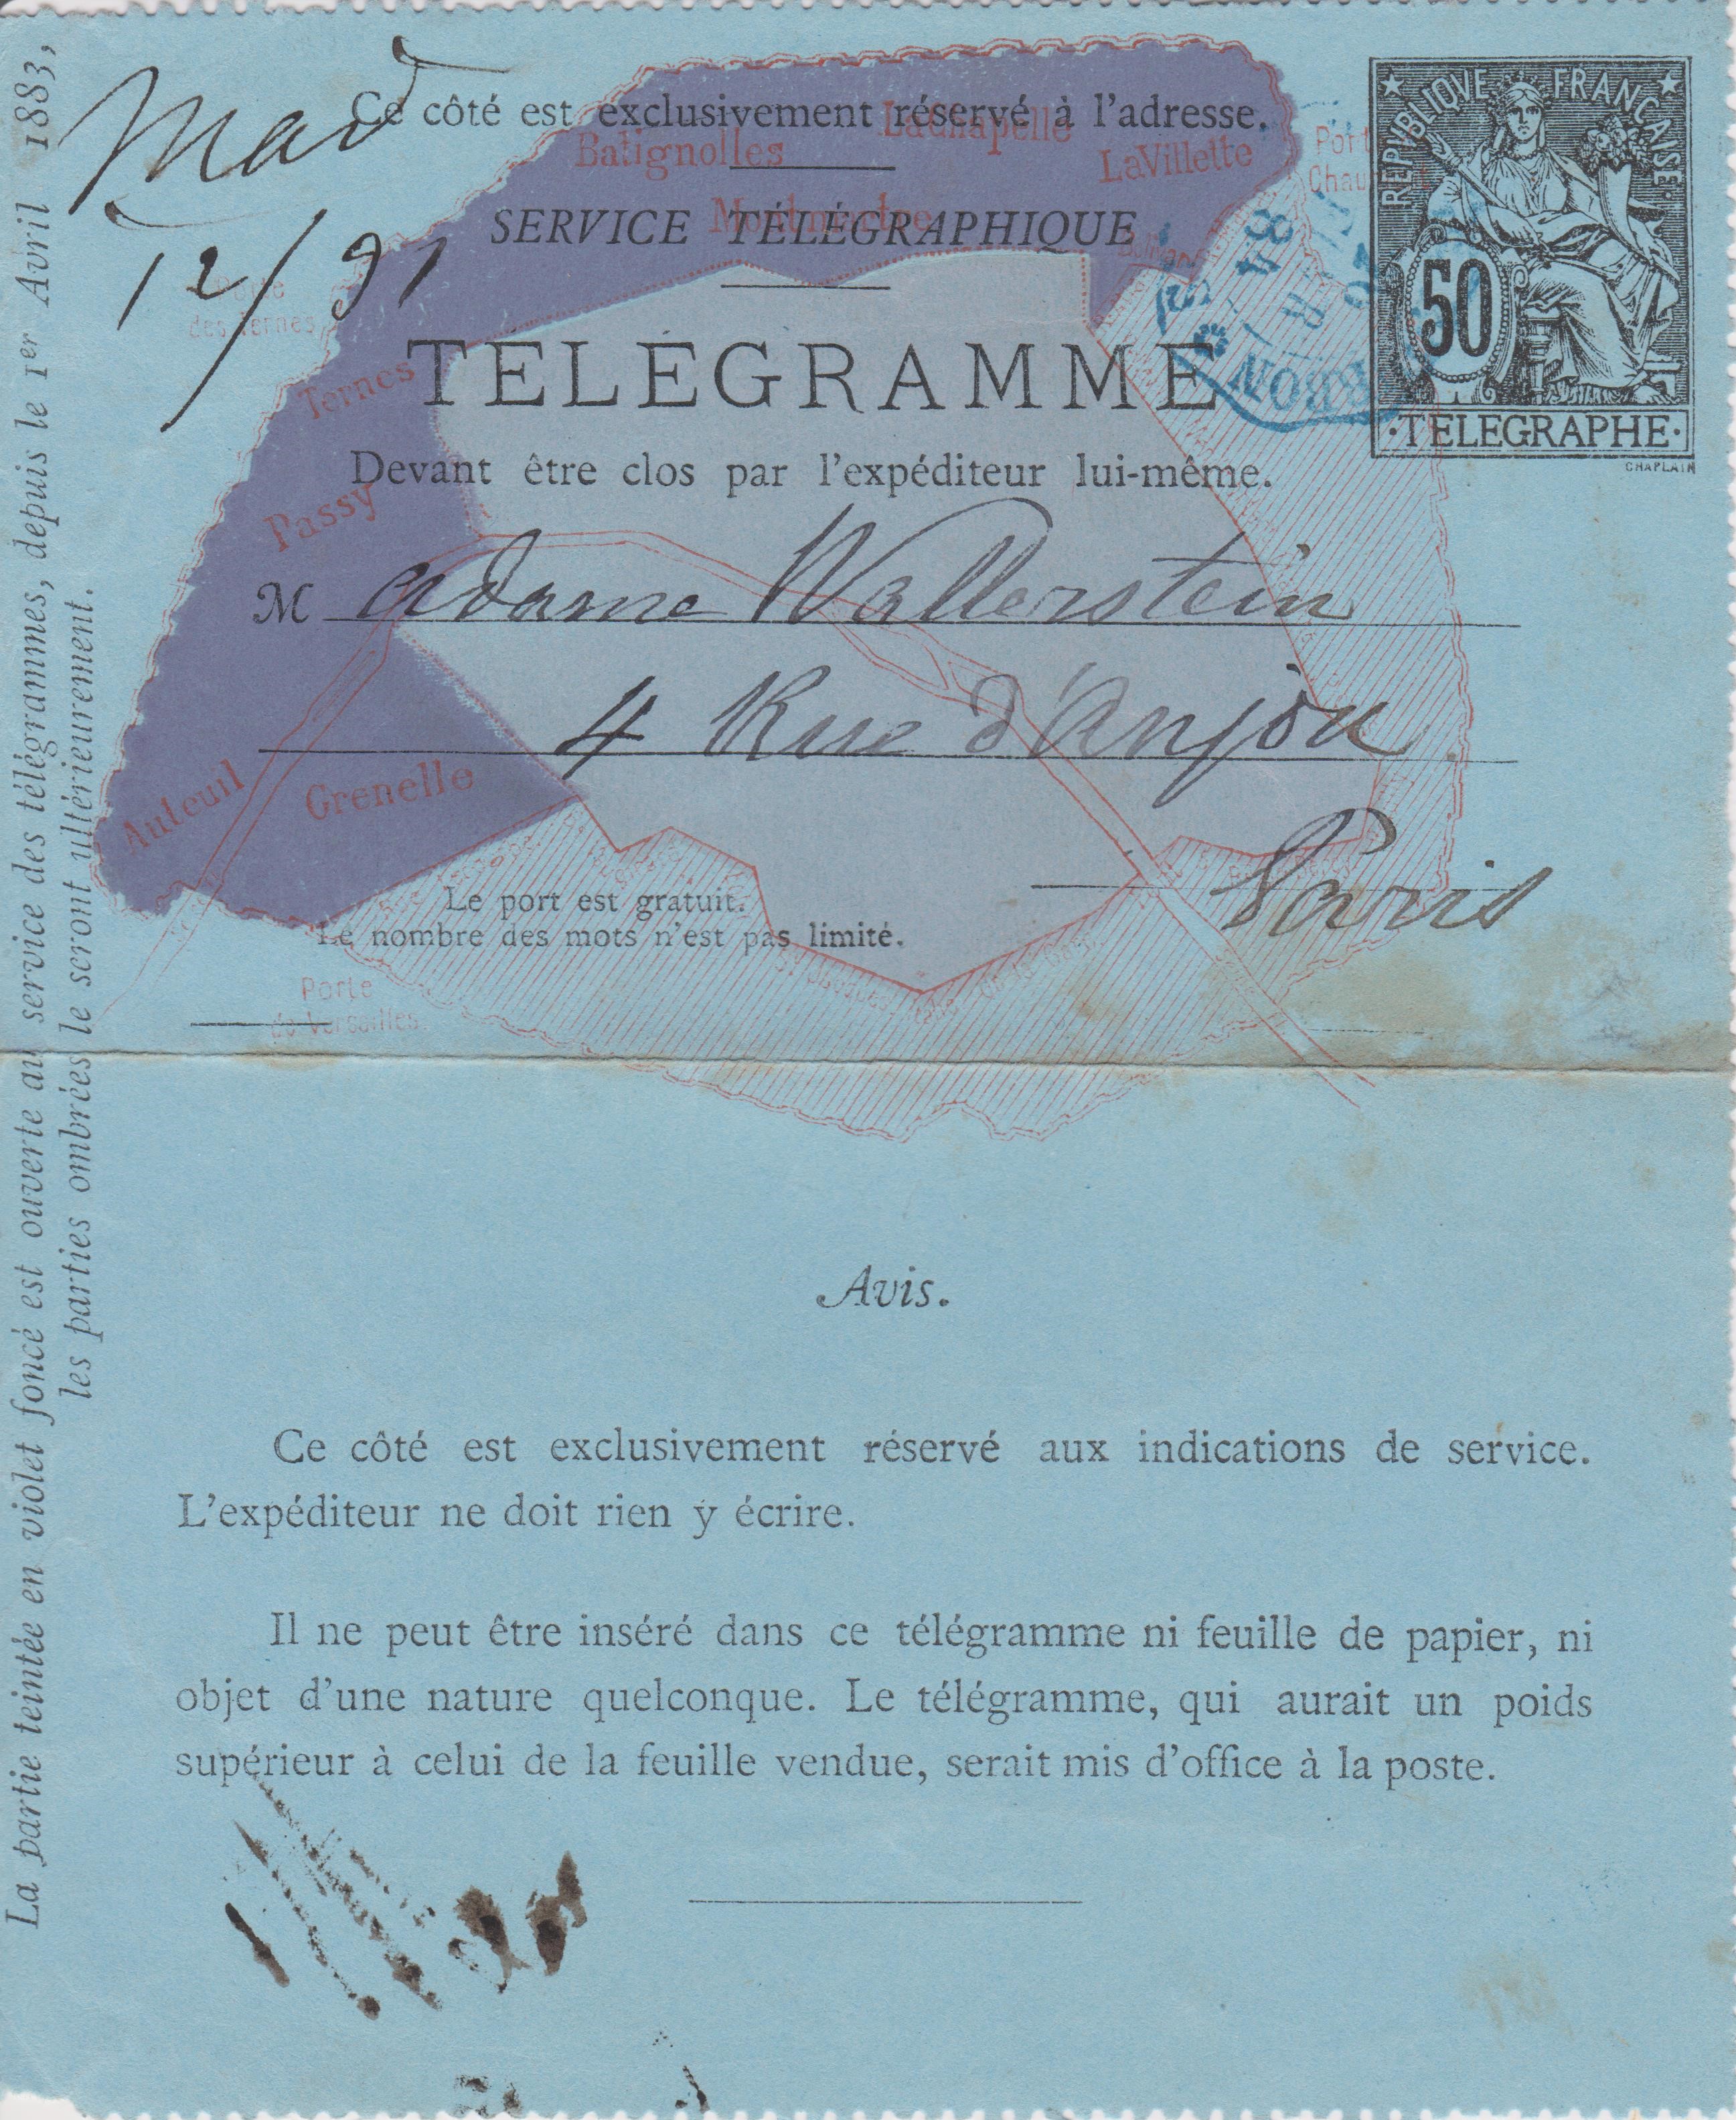 La partie teintée en violet foncé est ouverte au service des télégrammes, depuis le 1er Avril 1883,
les parties ombrées le seront ultérieurement.
Mad
12/91
Ce côté est exclusivement réservé à l'adresse.
Batignolles
La Chapelle
La Villette
Montmartre
SERVICE TÉLÉGRAPHIQUE
des Ternes
Ternes
TÉLÉGRAMME
Devant être clos par l'expéditeur lui-même.
★ REPUBLIQUE FRANÇAISE ★
50
·TELEGRAPHE·
CHAPLAIN
84
Passy
Madame Wallerstein
4 Rue d'Anjou
Paris
Auteuil
Grenelle
Le port est gratuit.
Le nombre des mots n'est pas limité.
Porte
de Versailles
Avis.
Ce côté est exclusivement réservé aux indications de service.
L'expéditeur ne doit rien y écrire.
Il ne peut être inséré dans ce télégramme ni feuille de papier, ni
objet d'une nature quelconque. Le télégramme, qui aurait un poids
supérieur à celui de la feuille vendue, serait mis d'office à la poste.